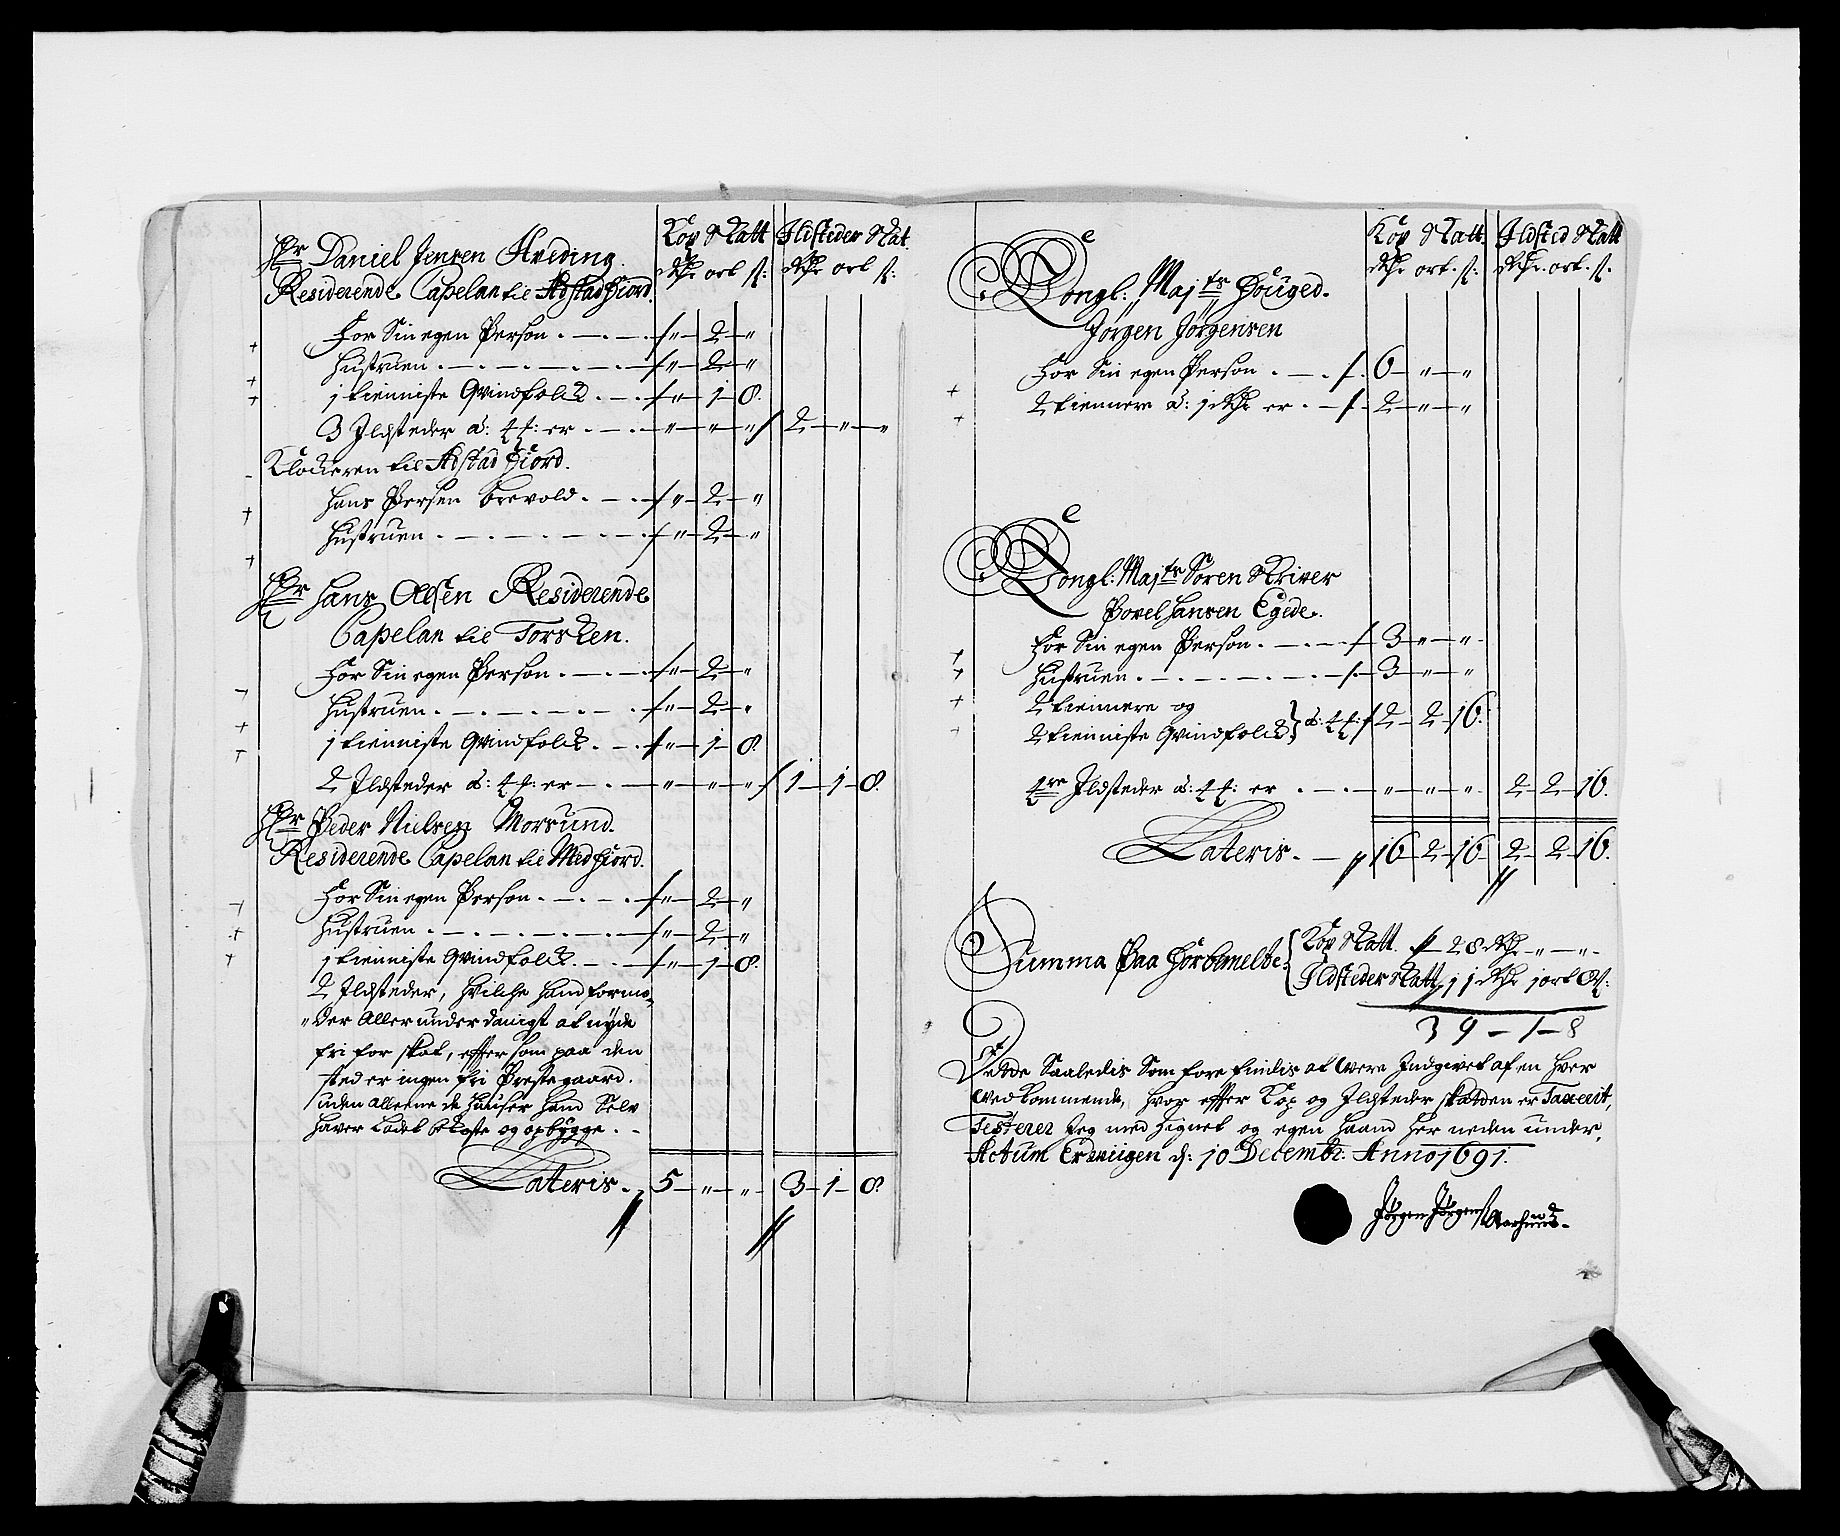 Kop Skatt Ildsteder Skat.
Rdr ort s: Rdr ort s:
Hr Daniel Jensen Hveding.
Residerende Capelan til Astadfiord.
For Sin egen Person . — . — . 〃 — 2 — 〃
Hustruen . — . — . — . — 〃 — 2 — 〃
1 tienniste Qvindfolck . — . — 〃 — 1 — 8.
3 Ildsteder a: 4 s: er . — . — 〃 — 〃 — 〃 / 2 — 〃 — 〃
Klockeren til Astadfiord.
Hans Persen Brevold . — . — 〃 — 2 — 〃
Hustruen . — . — . — . — 〃 — 2 — 〃
Hr Hans Olsen Residerende
Capelan til Torsken.
For Sin egen Person . — . — 〃 — 2 — 〃
Hustruen . — . — . — . — 〃 — 2 — 〃
1 tienniste Qvindfolck . — . — 〃 — 1 — 8
2 Ildsteder a: 4 s: er — . — 〃 — 〃 — 〃 / 1 — 1 — 8.
Hr Peder Nielsen Morsund.
Residerende Capelan til Medfiord.
For Sin egen Person . — . — 〃 — 2 — 〃
Hustruen . — . — . — . — 〃 — 2 — 〃
1 tienniste Qvindfolck . — . — 〃 — 1 — 8.
2 Ildsteder, hvilche hand formo-
〃der Allerunderdanigst at nyde
fri for skat, effter som paa den
sted er ingen fri Prestegaard.
uden alleene de Huuser hand Selv
haver Ladet bekoste og opbygge . .
Lateris . 5 — 〃 — 〃 3 — 1 — 8.
Kop Skatt Ildsted Skatt
Rdr. ort. s. Rdr. ort. s.
Kongl: Majtr Fouged.
Jørgen Jørgensen
For Sin egen Person . — . 6 — 〃 — 〃
2 tiennere a: 1 Rdr er . — . 2 — 〃 — 〃
Kongl: Majtr Soren Skriver
Povel Hansen Egede.
For Sin egen Person . — . — 3 — 〃 — 〃
Hustruen . — . — . — . — 3 — 〃 — 〃
2 tiennere og
2 tienniste Qvindfolck } a: 4 s: 2 — 2 — 16.
4re Ildsteder a: 4 s: er . — . — 〃 — 〃 — 〃 2 — 2 — 16.
Lateris . — 16 — 2 — 16. 2 — 2 — 16.
Summa Paa forbemelte { Kop Skatt . 28 Rdr — 〃 — 〃 —
Ildsteder Skatt 11 Rdr 1 ort 8 s:
39 — 1 — 8
Dette Saaledis Som forefindis at Were Indgivet af en hver
Wedkommende, hvor effter Kop og Ildsteder skatden er Taxerit,
Testerer Jeg med Signet og egen haand her neden under.
Actum Erviigen d: 10 Decembr: Anno 1691.
Jørgen Jørgens